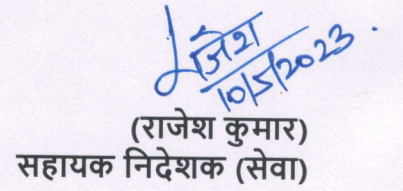 राजेश
10/5/2023.
(राजेश कुमार)
सहायक निदेशक (सेवा)